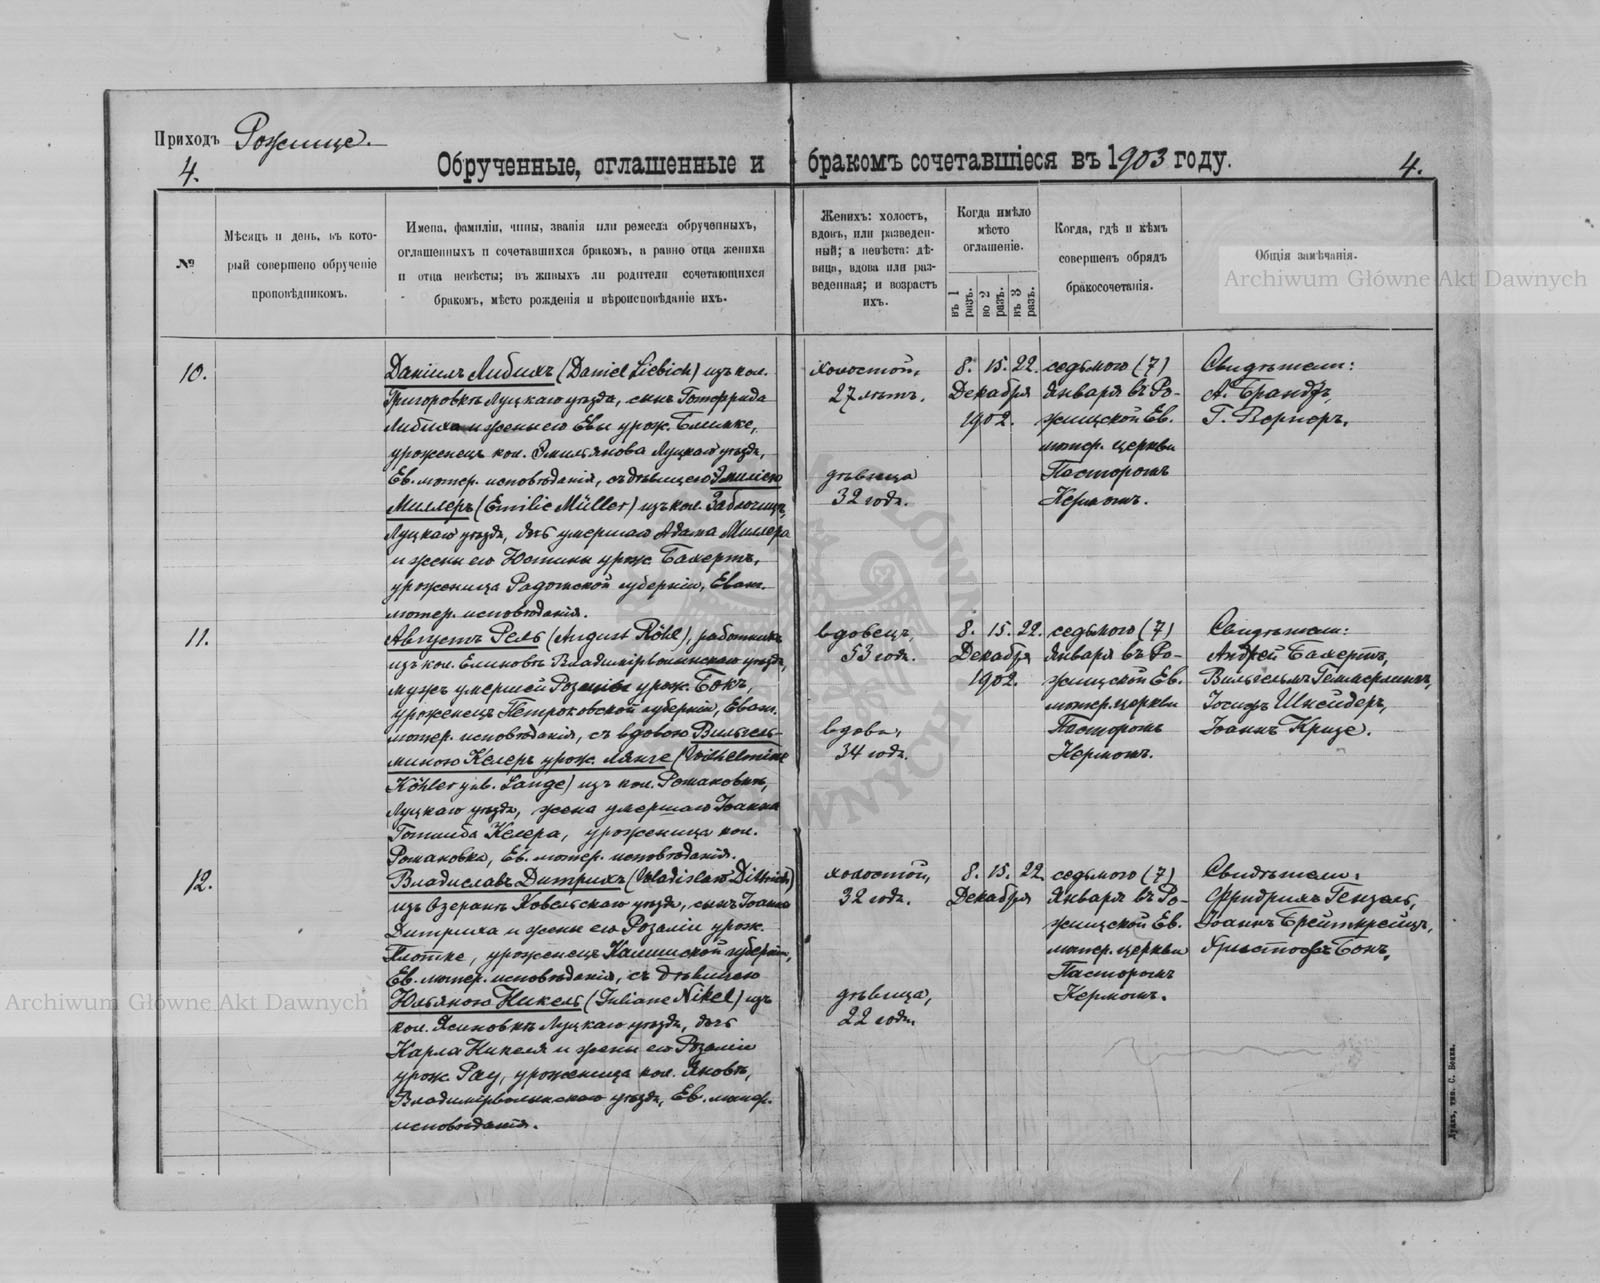 Приходъ Рожище.
4.
Обрученные, оглашенные и бракомъ сочетавшіеся въ 1903 году.
4.
№
Мѣсяцъ и день, въ кото-
рый совершено обрученіе
проповѣдникомъ.
Имена, фамиліи, чины, званія или ремесла обрученныхъ,
оглашенныхъ и сочетавшихся бракомъ, а равно отца жениха
и отца невѣсты; въ живыхъ ли родители сочетающихся
бракомъ, мѣсто рожденія и вѣроисповѣданіе ихъ.
Женихъ: холостъ,
вдовъ, или разведен-
ный; а невѣста: дѣ-
вица, вдова или раз-
веденная; и возрастъ
ихъ.
Когда имѣло
мѣсто
оглашеніе.
въ 1 разъ.
во 2 разъ.
въ 3 разъ.
Когда, гдѣ и кѣмъ
совершенъ обрядъ
бракосочетанія.
Общія замѣчанія.
Archiwum Główne Akt Dawnych
10.
Даніилъ Либихъ (Daniel Liebich) изъ кол.
Григоровкѣ Луцкаго уѣзда, сынъ Готфрида
Либиха и жены его Евы урож. Блимке,
уроженецъ кол. Эмильянова Луцкаго уѣзда,
Ев. лютер. исповѣданія, съ дѣвицею Эмиліею
Миллеръ (Emilie Müller) изъ кол. Заблочицъ,
Луцкаго уѣзда, дочь умершаго Адама Миллера
и жены его Юстины урож. Балертъ,
уроженица Радомской губерніи, Еванг.
лютер. исповѣданія.
холостой,
27 лѣтъ.
дѣвица
32 года.
8. 15. 22.
Декабря
1902.
седьмого (7)
Января въ Ро-
жищской Ев.
лютер. церкви
Пасторомъ
Кермомъ.
Свидѣтели:
А. Брандъ,
Г. Вернеръ.
11.
Августъ Рель (August Röhl), работникъ
изъ кол. Елиновъ Владимірволынскаго уѣзда,
мужъ умершей Розаліи урож. Бокъ,
уроженецъ Петроковской губерніи, Еванг.
лютер. исповѣданія, съ вдовою Вильгель-
миною Келеръ урож. Лянге (Wilhelmine
Köhler geb. Lange) изъ кол. Романовкѣ,
Луцкаго уѣзда, жена умершаго Іоанна
Готлиба Келера, уроженица кол.
Романовка, Ев. лютер. исповѣданія.
вдовецъ,
53 года.
вдова,
34 года.
8. 15. 22.
Декабря
1902.
седьмого (7)
Января въ Ро-
жищской Ев.
лютер. церкви
Пасторомъ
Кермомъ.
Свидѣтели:
Андрей Балертъ,
Вильгельмъ Геммерлингъ,
Іосифъ Шнейдеръ,
Іоаннъ Кризе.
12.
Владиславъ Дитрихъ (Wladislaw Dittrich)
изъ Озеранъ Ковельскаго уѣзда, сынъ Іоанна
Дитриха и жены его Розаліи урож.
Плотке, уроженецъ Калишской губерніи,
Ев. лютер. исповѣданія, съ дѣвицею
Юльяною Никель (Juliane Nikel) изъ
кол. Ясиновкѣ Луцкаго уѣзда, дочь
Карла Никеля и жены его Розаліи
урож. Рау, уроженица кол. Яновкѣ,
Владимірволынскаго уѣзда, Ев. лютер.
исповѣданія.
холостой,
32 года.
дѣвица,
22 года.
8. 15. 22.
Декабря
седьмого (7)
Января въ Ро-
жищской Ев.
лютер. церкви
Пасторомъ
Кермомъ.
Свидѣтели:
Фридрихъ Гензель,
Іоаннъ Брейткрейцъ,
Христофъ Бокъ.
Archiwum Główne Akt Dawnych
Луцкъ, тип. С. Бонка.